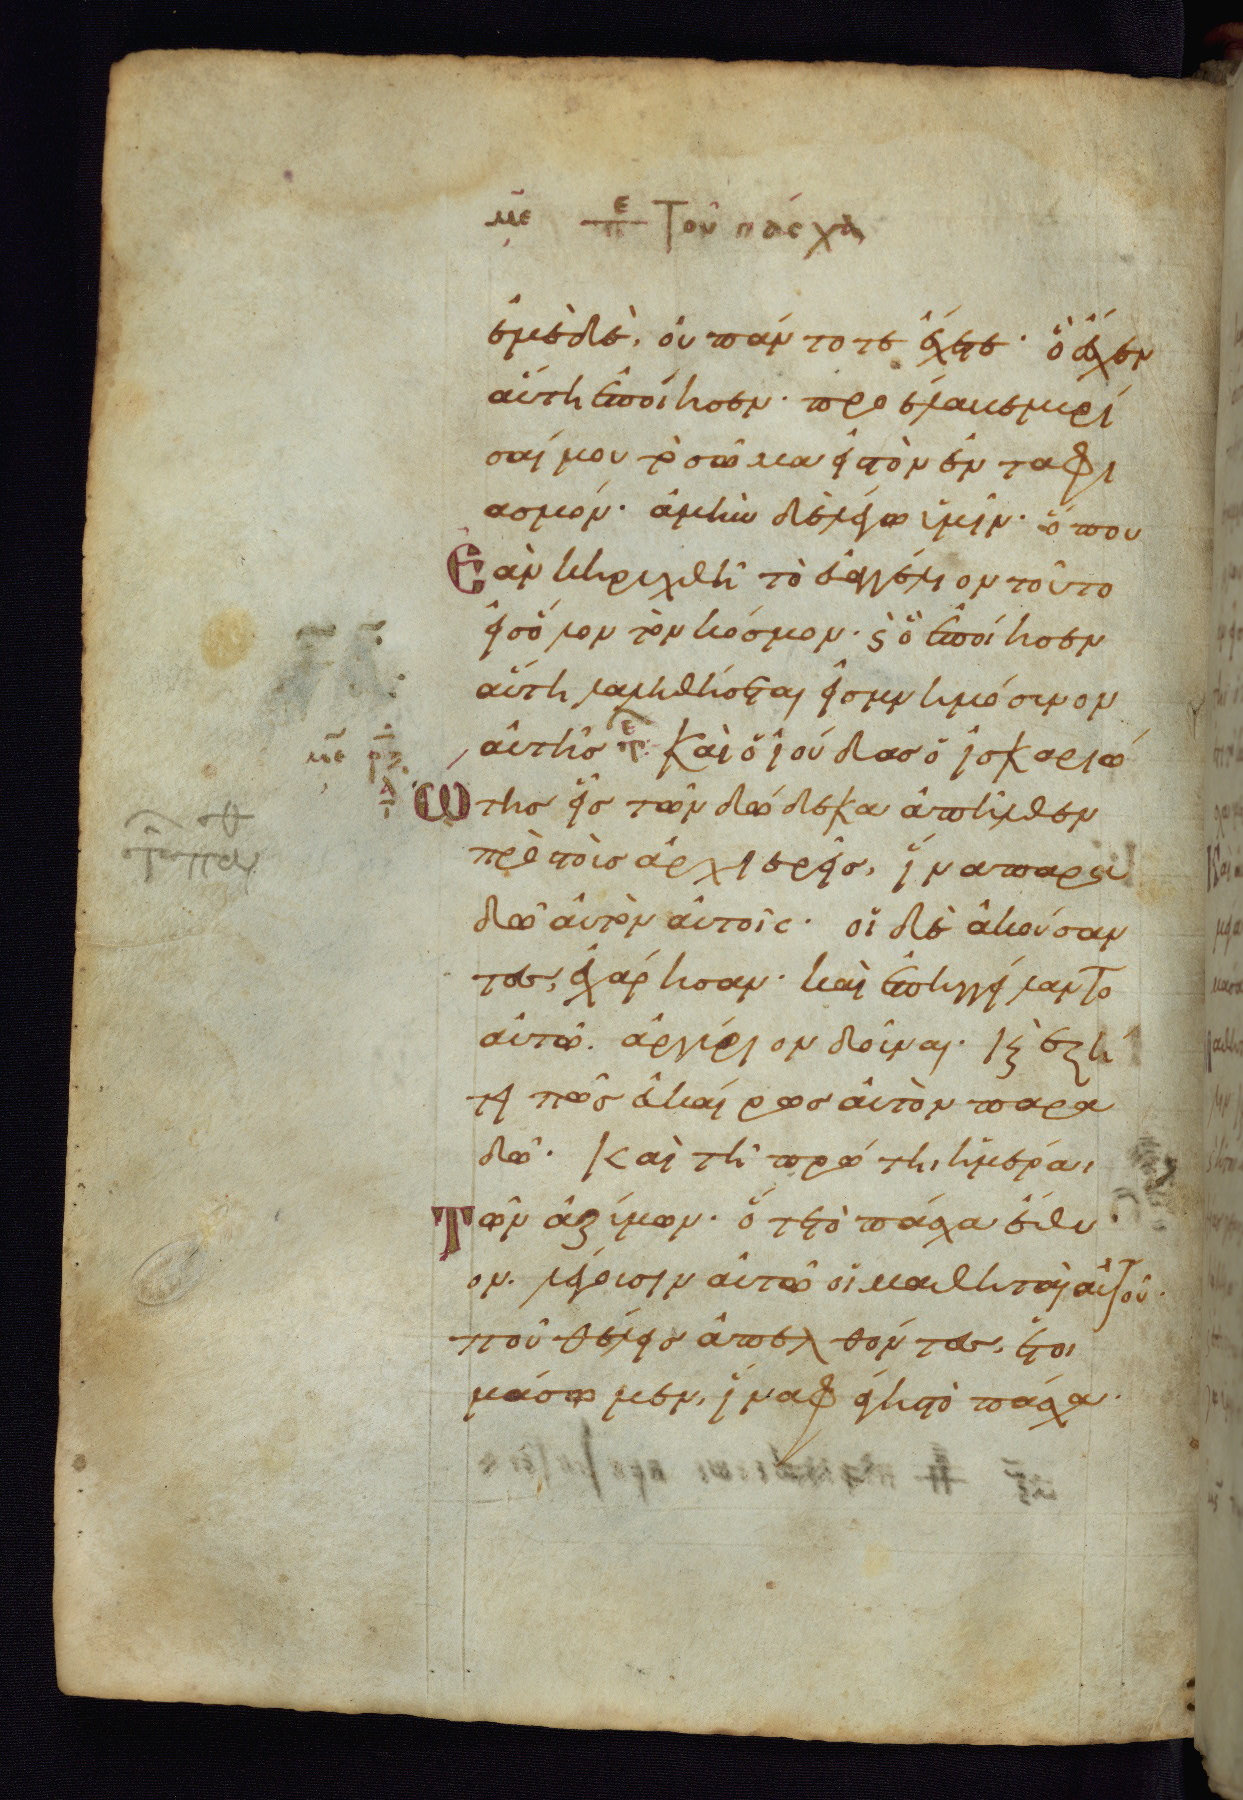 με ε π Τοῦ πάσχα
ἐμὲ δὲ, οὐ πάντοτε ἔχετε· ὃ ἔσχεν
αὕτη ἐποίησεν· προέλαβε μυρί
σαί μου τὸ σῶμα εἰς τὸν ἐνταφι
ασμόν· ἀμὴν δὲ λέγω ὑμῖν· ὅπου
ἐὰν κηρυχθῆ τὸ εὐαγγέλιον τοῦτο
εἰς ὅλον τὸν κόσμον· καὶ ὃ ἐποίησεν
αὕτη λαληθήσεται εἰς μνημόσυνον
αὐτῆς Καὶ ὁ ἰούδας ὁ ἰσκαριώ
της εἷς τῶν δώδεκα ἀπῆλθεν
πρὸς τοὺς ἀρχιερεῖς, ἵνα παρα
δῶ αὐτὸν αὐτοῖς· οἱ δὲ ἀκούσαν
τες, ἐχάρησαν· καὶ ἐπηγγείλαντο
αὐτῶ ἀργύριον δοῦναι· καὶ ἐζή
τει πῶς εὐκαίρως αὐτὸν παρα
δῶ· Καὶ τῆ πρώτη ἡμέρα,
τῶν ἀζύμων· ὅτε τὸ πάσχα ἔθυ
ον· λέγουσιν αὐτῶ οἱ μαθηταὶ αὐτοῦ·
ποῦ θέλεις ἀπελθόντες, ἑτοι
μάσωμεν, ἵνα φάγης τὸ πάσχα·